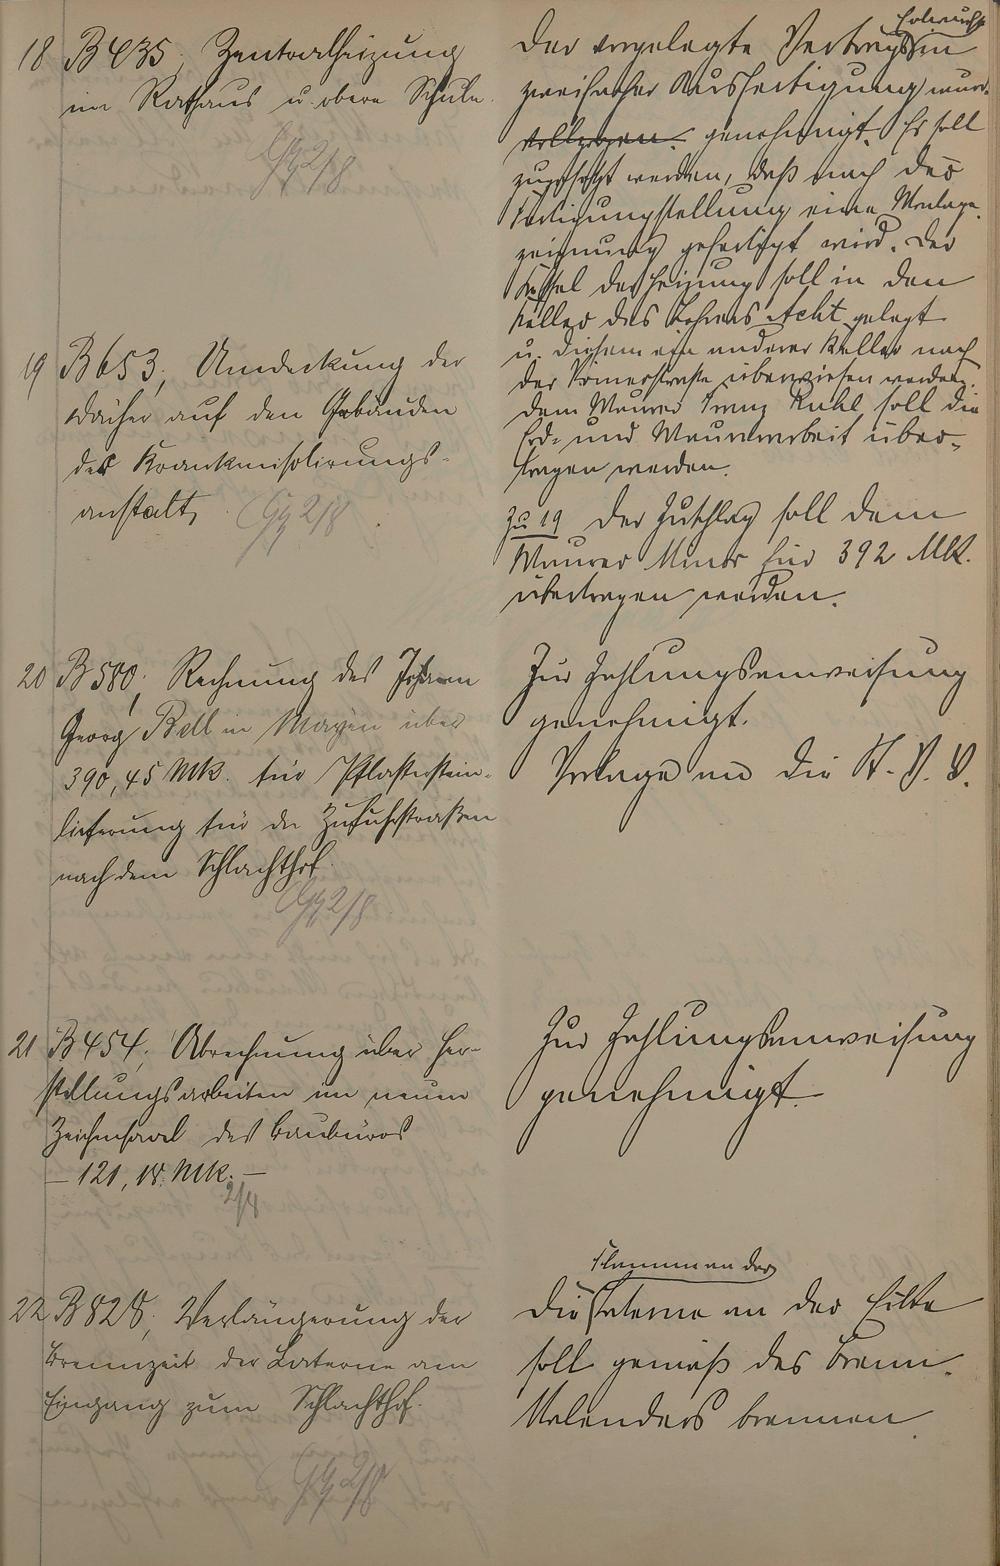 18 B 435, Zentralheizung
im Rathaus u. obere Schule.
Gz 2/8
Der vorgelegte Vertrags Entwurf in
zweifacher Ausfertigung wurde
vollzogen. genehmigt. Es soll
zugesetzt werden, daß nach der
Fertigungstellung eine Montage-
zeichnung gefertigt wird. Der
Kessel der Heizung soll in den
Keller des Lehrers Acht gelegt
u. diesem ein anderer Keller nach
der Römerstraße überwiesen werden.
Dem Maurer Franz Kuhl soll die
Erd- und Maurerarbeit über-
tragen werden.
19 B 653, Umdeckung der
Dächer auf den Gebäuden
der Krankenisolirungs-
anstalt,
Gz 2/8
Zu 19 Der Zuschlag soll dem
Maurer für 392 Mk.
übertragen werden.
20 B 580, Rechnung des Johann
Georg Bell in Mayen über
390,45 Mk. für Pflasterstein-
lieferung für die Zufuhrstraßen
nach dem Schlachthof.
Gz 2/8
Zur Zahlungsanweisung
genehmigt.
Vorlage an die St. V. V.
21 B 454, Abrechnung über Her-
stellungsarbeiten im neuen
Zeichensaal des Bauburos
– 121,18 Mk. –
2/4
Zur Zahlungsanweisung
genehmigt.
22 B 828, Verlängerung der
Brennzeit der Laterne am
Eingang zum Schlachthof.
Gz 2/8
Die Flammen der Laterne an der
soll gemäß des Brenn-
kalenders brennen.